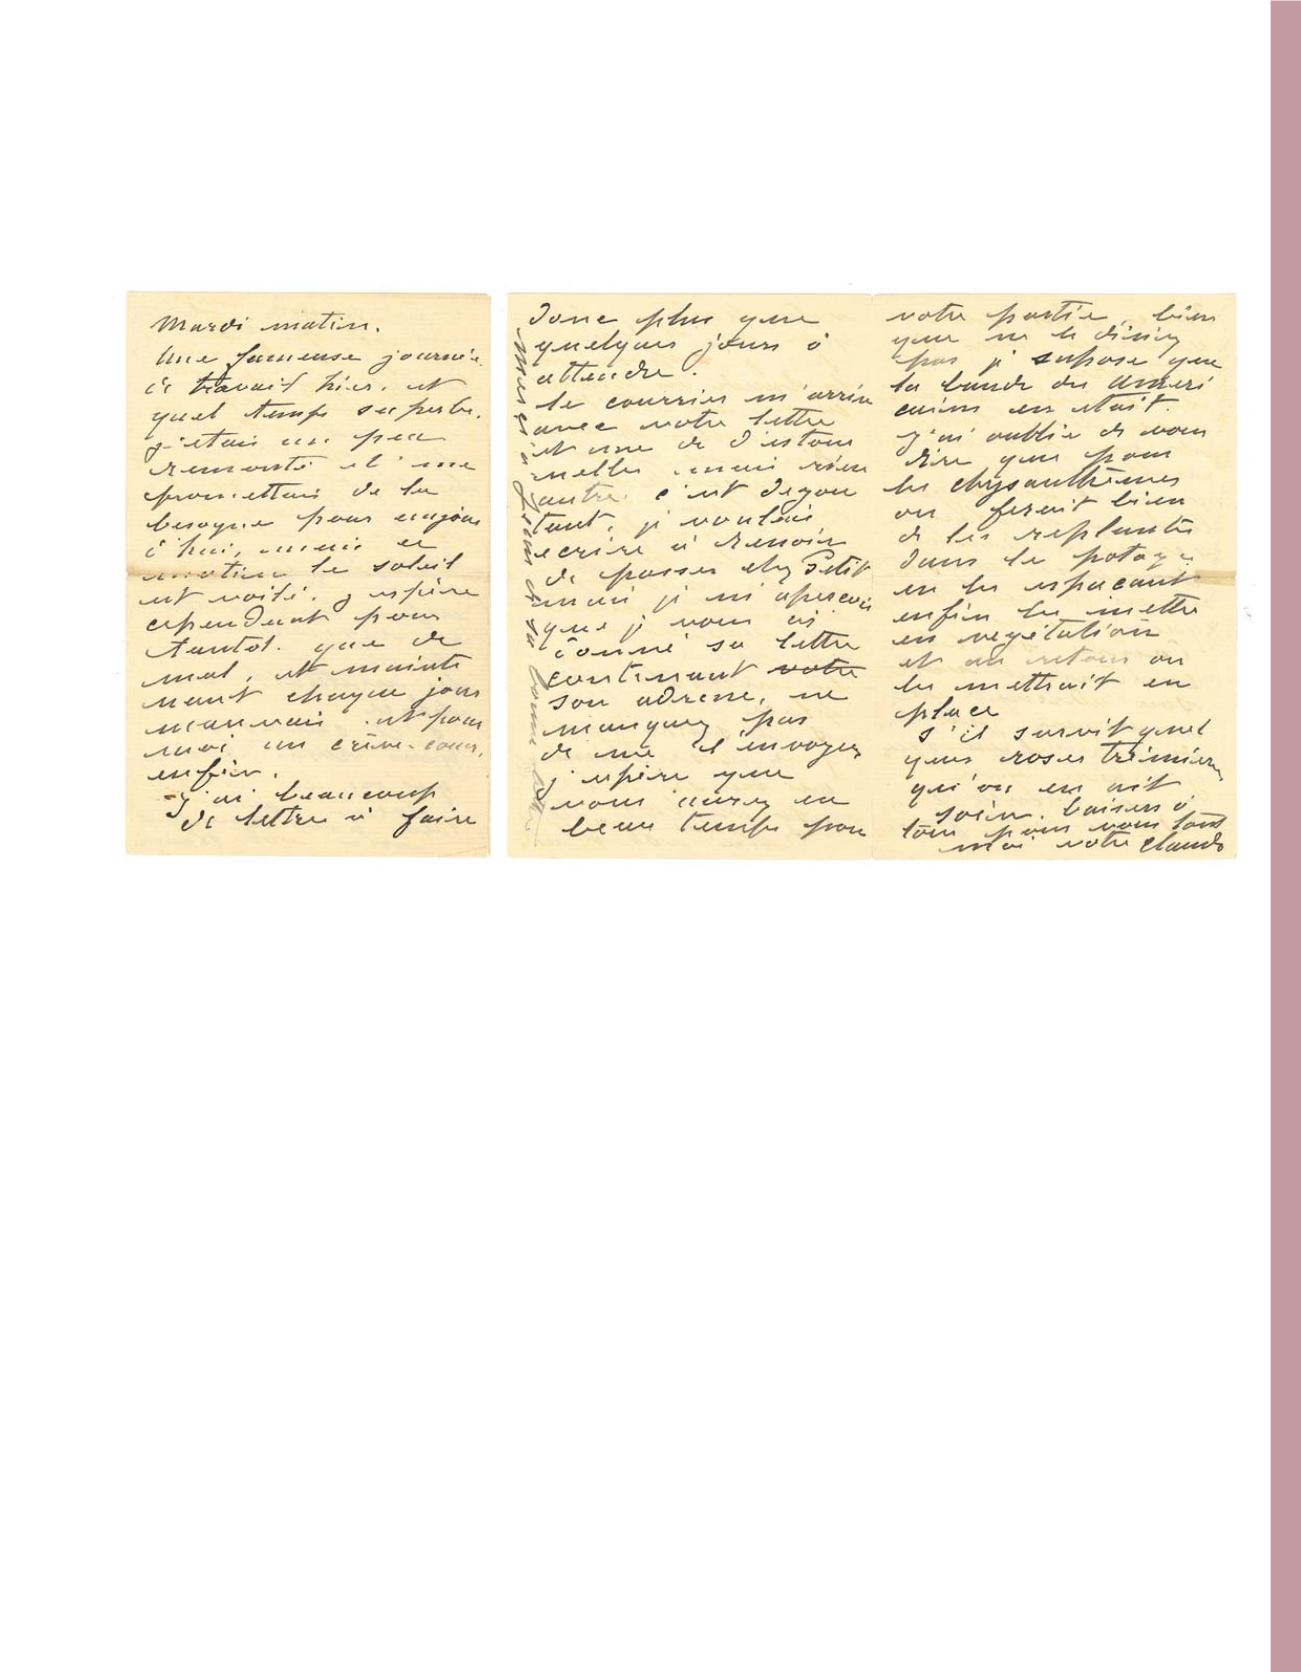 Mardi matin.
Une fameuse journée
de travail hier. et
quel temps superbe.
j'etais un peu
remonté et me
promettais de la
besogne pour aujour
d'hui, mais ce
matin le soleil
est voilé. j'espère
cependant pour
tantot. que de
mal, et mainte
nant chaque jour
mauvais est pour
moi un crève-coeur.
enfin.
- J'ai beaucoup
de lettre à faire
donc plus que
quelques jours à
attendre.
le courrier m'arrive
avec votre lettre
et une de d'estour
nelles mais rien
autre. c'est degou
tant, je voulais
ecrire à Renoir
de passer chez Petit
mais je m'aperçois
que je vous ai
donné sa lettre
contenant votre
son adresse, ne
manquez pas
de me l'envoyer
j'espère que
vous aurez eu
beau temps pour
Merci à Jean de sa bonne lettre
votre partie, bien
que ne le disiez
pas je supose que
la bande des ameri
cains en était.
j'ai oublié de vous
dire que pour
les chysanthèmes
on ferait bien
de les replanter
dans le potager
en les espaçant
enfin les mettre
en vegétation
et au retour on
les mettrait en
place
s'il survit quel
ques roses trémieres
qu'on en ait
soin. baisers à
tous pour vous tous
moi votre Claude